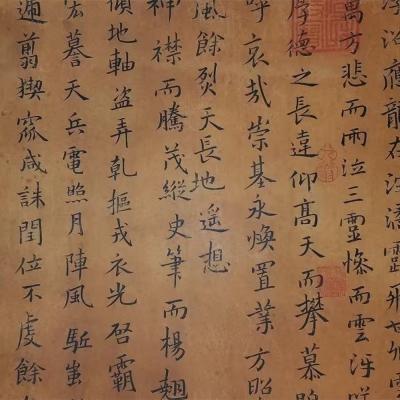 應龍在
萬方悲而雨泣三靈慘而雲
厚德之長違仰高天而攀慕
呼哀哉崇基永煥置業方昭
風餘烈天長地遙想
神襟而騰茂縱史筆而楊翹
傾地軸盜弄乾樞戎衣光啓霸
宏謩天兵電照月陣風駈蚩
翦猰窳咸誅閏位不虔餘